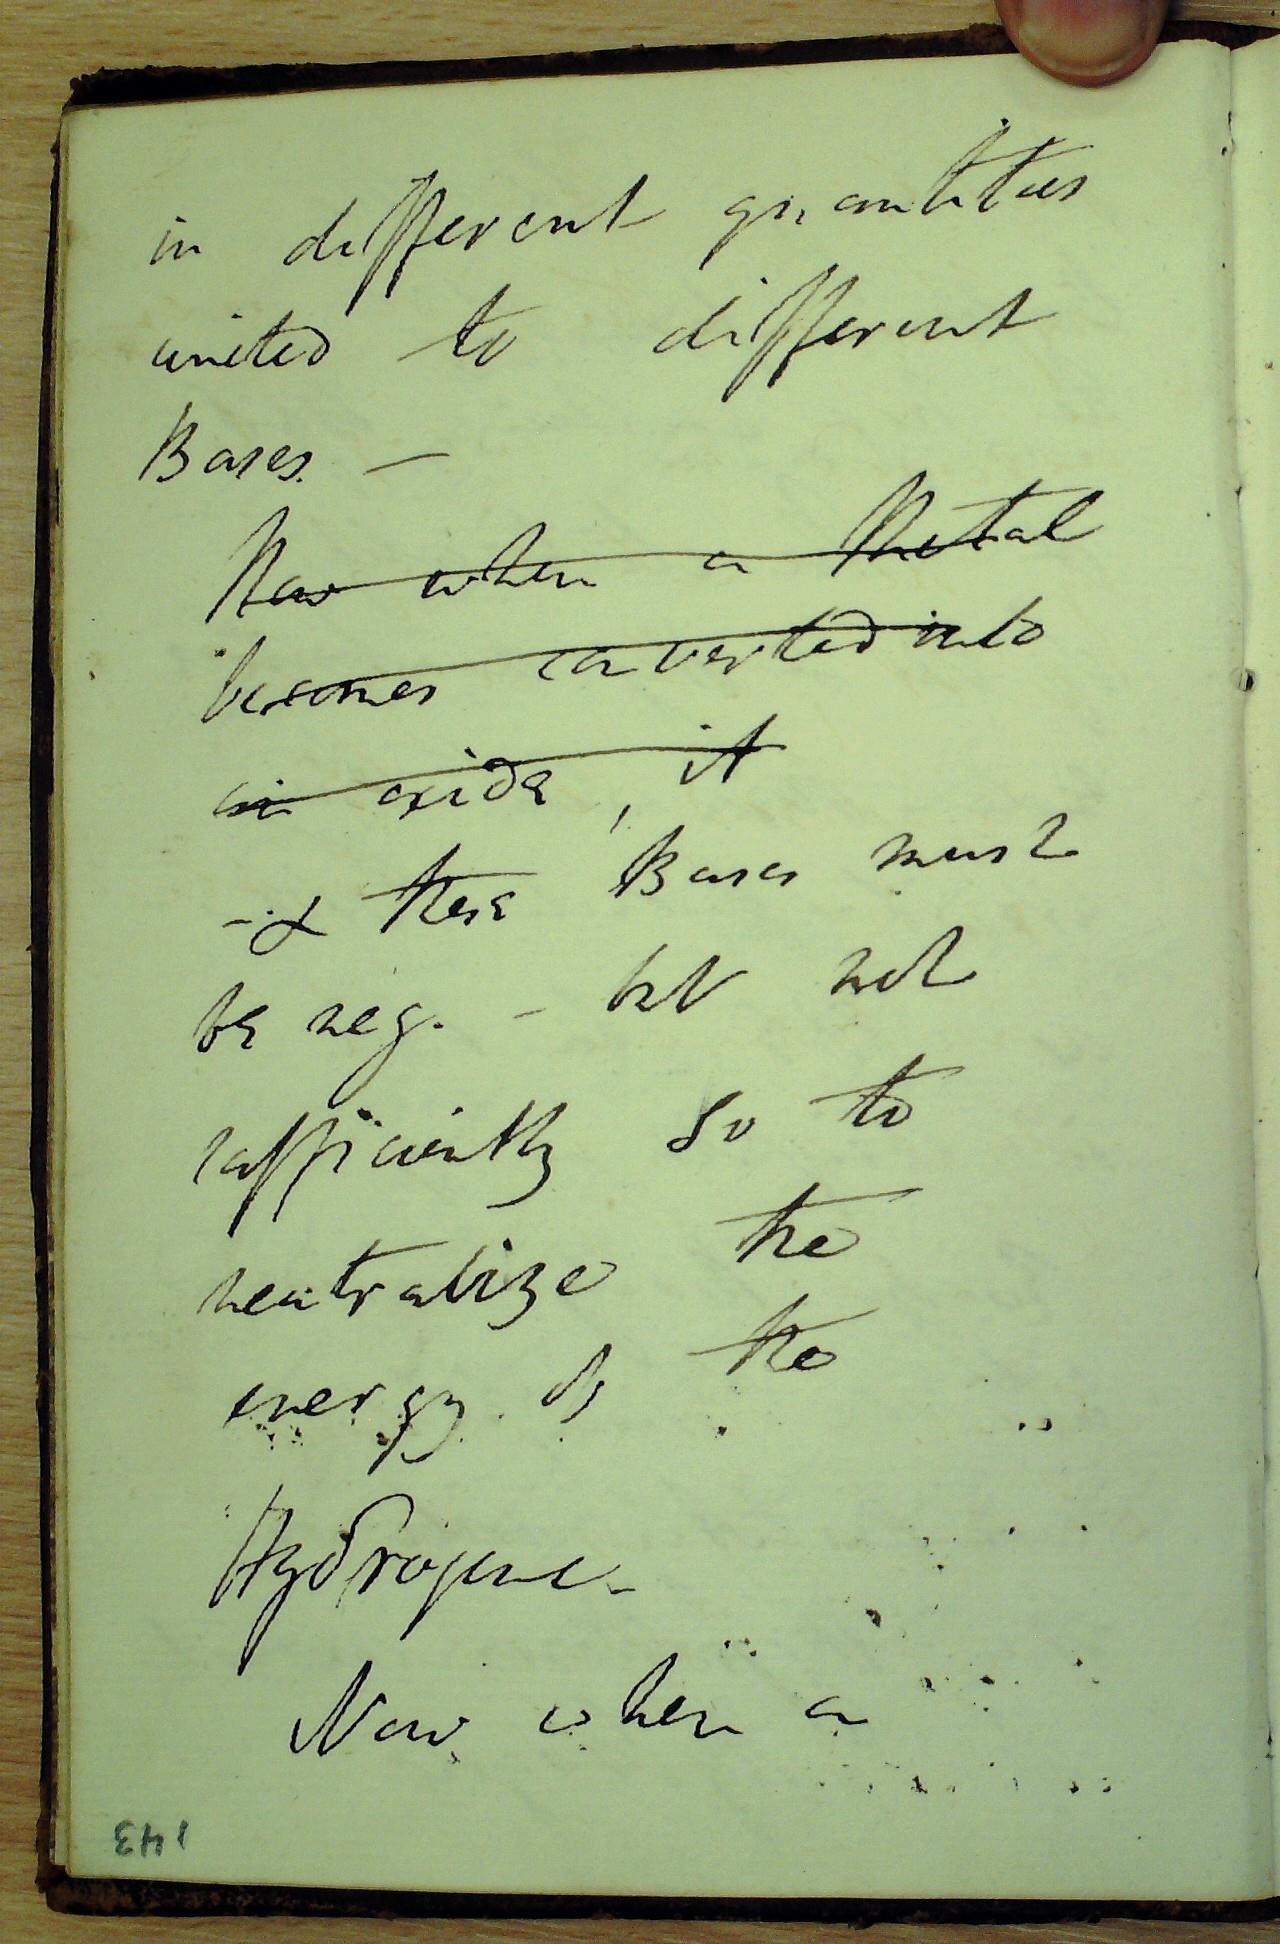 in different quantities
united to different
Bases. —
Now when a Metal
becomes converted into
an oxide, it
- & these Bases must
be neg. - but not
sufficiently so to
neutralize the
energy of the
Hydrogene -
Now when a
143